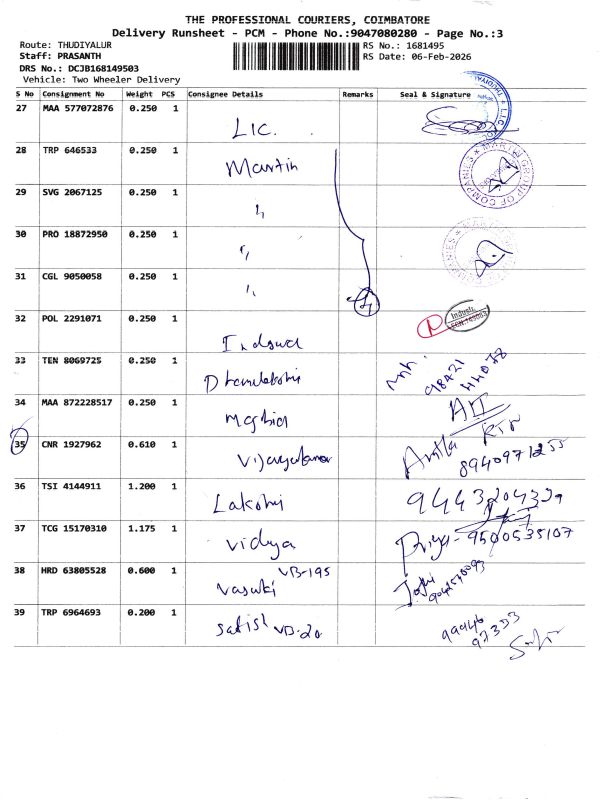 THE PROFESSIONAL COURIERS, COIMBATORE
Delivery Runsheet - PCM - Phone No.:9047080280 - Page No.:3
Route: THUDIYALUR RS No.: 1681495
Staff: PRASANTH RS Date: 06-Feb-2026
DRS No.: DCJB168149503
Vehicle: Two Wheeler Delivery
S No Consignment No Weight PCS Consignee Details Remarks Seal & Signature
27 MAA 577072876 0.250 1 LIC.
28 TRP 646533 0.250 1 Martin MARTIN GROUP OF COMPANIES
29 SVG 2067125 0.250 1 "
30 PRO 18872950 0.250 1 " MARTIN GROUP OF COMPANIES
31 CGL 9050058 0.250 1 "
32 POL 2291071 0.250 1
33 TEN 8069725 0.250 1 98421 44078
34 MAA 872228517 0.250 1
35 CNR 1927962 0.610 1 8940971255
36 TSI 4144911 1.200 1 Lakshmi
37 TCG 15170310 1.175 1 Vidya Priya - 9500535107
38 HRD 63805528 0.600 1 Vasuki VB-195
39 TRP 6964693 0.200 1 Satish VB-20 99946 97353